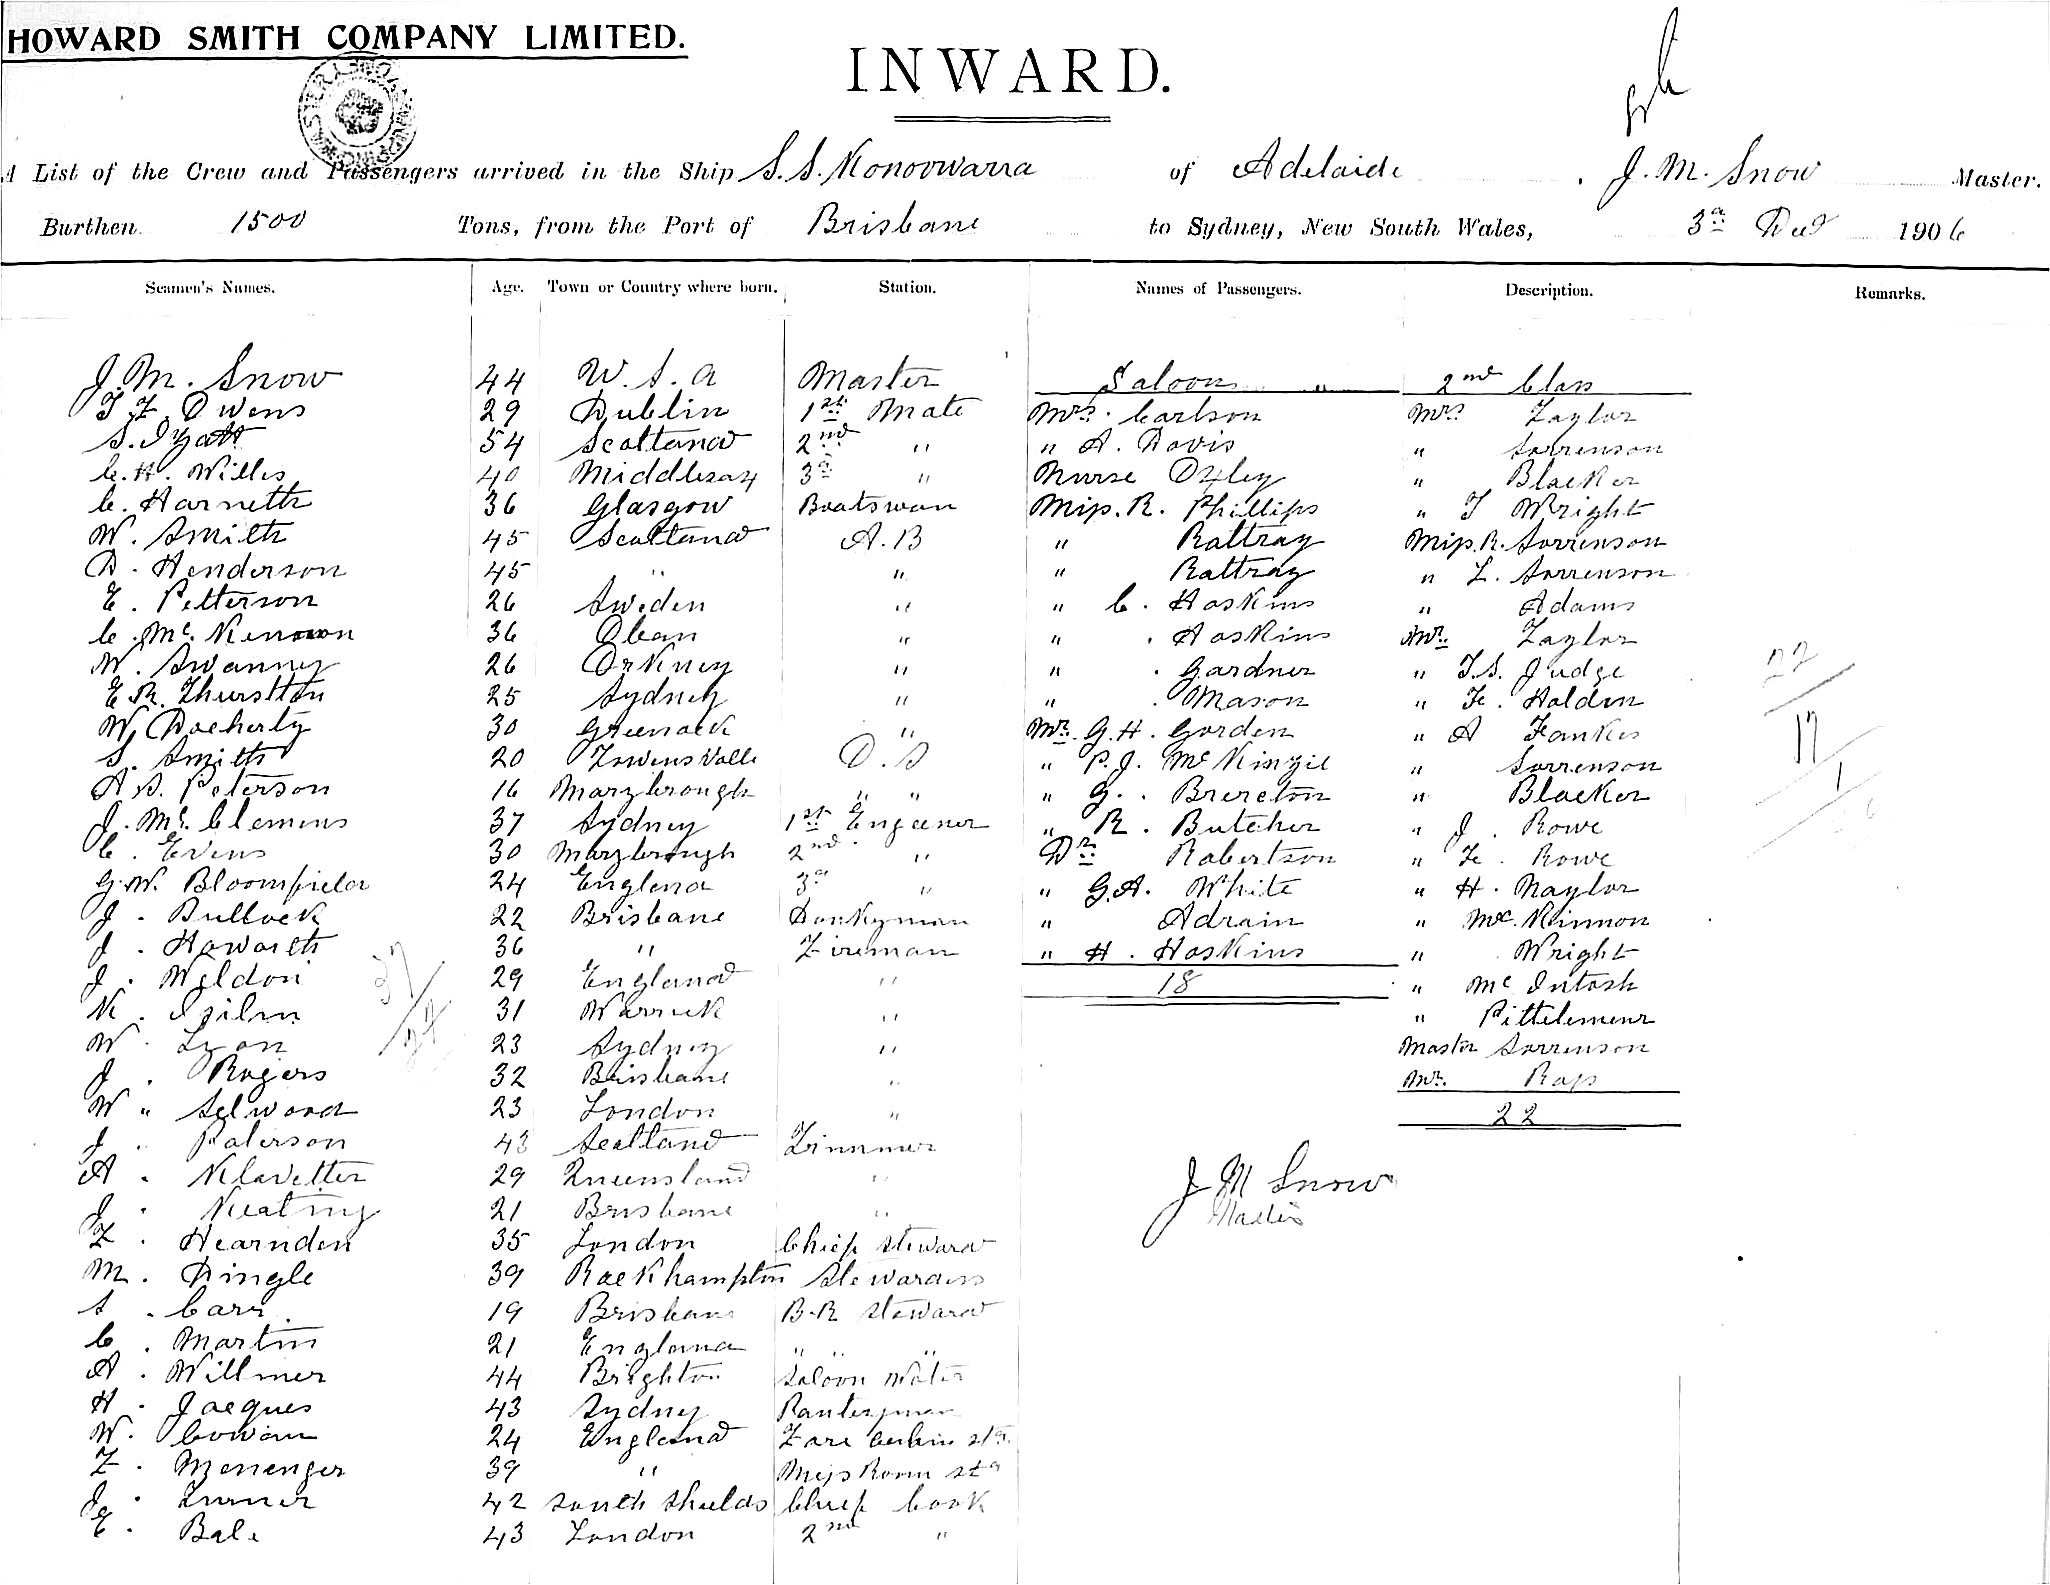 HOWARD SMITH COMPANY LIMITED.
INWARD.
A List of the Crew and Passengers arrived in the Ship S.S. Konoowarra of Adelaide . J. M. Snow Master.
Burthen 1500 Tons, from the Port of Brisbane to Sydney, New South Wales, 3rd 1906
Seamen's Names. Age. Town or Country where born. Station. Names of Passengers. Description. Remarks.
J. M. Snow 44 Master Saloon " 2nd Class
Owens 29 Dublin 1st Mate Mrs. Carlson Mrs Taylor
54 Scotland 2nd " " A. Davis " Sorrenson
C. H. Willis 40 Middlesax 3d " Nurse Oxley " Blacker
C. Harneth 36 Glasgow Boatswan Miss. R. Phillips " T Wright
W. Smith 45 Scotland A.B " Rattray Miss. R. Sorrenson
D. Henderson 45 " " " Rattray " L. Sorrenson
E. Petterson 26 Sweden " " C. Hoskins " Adams
C. Mc. 36 Oban " " . Hoskins Mr. Taylor
W. Swanney 26 Orkney " " . Gardner " T.S. Judge
E R. Thurstton 25 Sydney " " . Mason " Fr. Holden
W. Docherty 30 Greenock " Mr. G. H. Gorden " A
S. Smith 20 Townsvalle O. S " P. J. Mc Kinzie " Sorrenson
A. S. Peterson 16 Maryborough " " " G. . Brereton " Blacker
J. Mc. Clemens 37 Sydney 1st Engeener " R. Butcher " J. Rowe
C. Evens 30 Maryborough 2nd. " Dr. Robertson " Fr. Rowe
G. W. Bloomfield 24 England 3d " " G. A. White " H. Naylor
J. Bullock 22 Brisbane Donkyman " Adrain " Mc. Kinnon
J. Howarth 36 " Fireman " H. Hoskins " Wright
J. Weldon 29 England " 18 " Mc Intosh
K. 31 Warrick " "
W. Lyon 23 Sydney " Master Sorrenson
J. Rogers 32 Brisbane " Mr. Rass
W " Selwood 23 London " 22
J. Paterson 43 Scotland Trimmer
A. Klavetter 29 Queensland " J M Snow
J. Keating 21 Brisbane " Master
F. Hearnden 35 London Chief Steward
M. Dingle 39 Rockhampton Stewardess
S. Carr. 19 Brisbane B.R Steward
C. Martin 21 England " " "
A. Willmer 44 Brighton Saloon Water
H. Jacques 43 Sydney Panteryman
W. Cowan 24 England Fore Cabin Std.
F. Messenger 39 " Mess Room Std
J. Turner 42 South Shields Chief Cook
E. Bale 43 London 2nd "